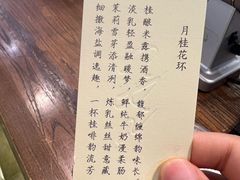 月桂花环
桂酿米露携酒香
淡乳轻盈融暖梦
茉莉雪芽添清冽
细撒海盐调逸趣
馥郁缠绵韵味长
鲜纯牛奶漫柔肠
炼乳丝丝甜意藏
一杯桂啡韵流芳